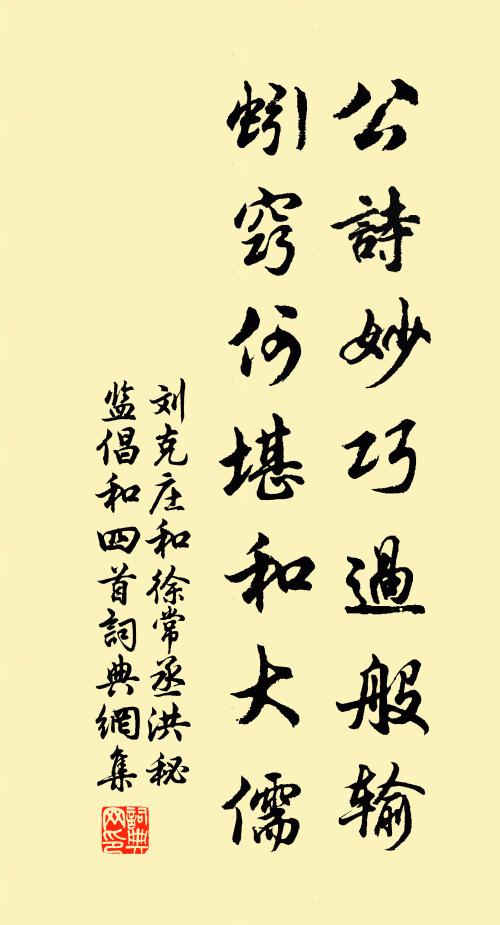 公詩妙巧過般输
蚓窍何堪和大儒
刘克庄和徐常丞洪秘
监倡和四首詞典網集
詞典
网印